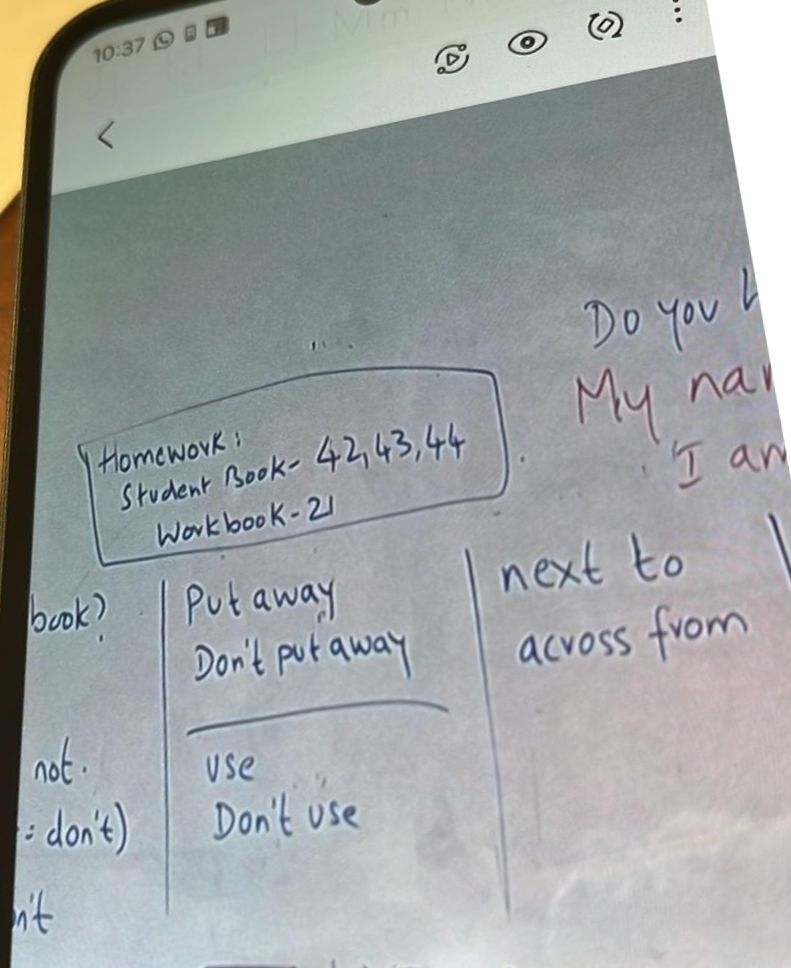 10:37
Do you
My
I
Homework:
Student Book- 42,43,44
Workbook-21
book?
not.
: don't)
n't
Put away
Don't put away
use
Don't use
next to
across from